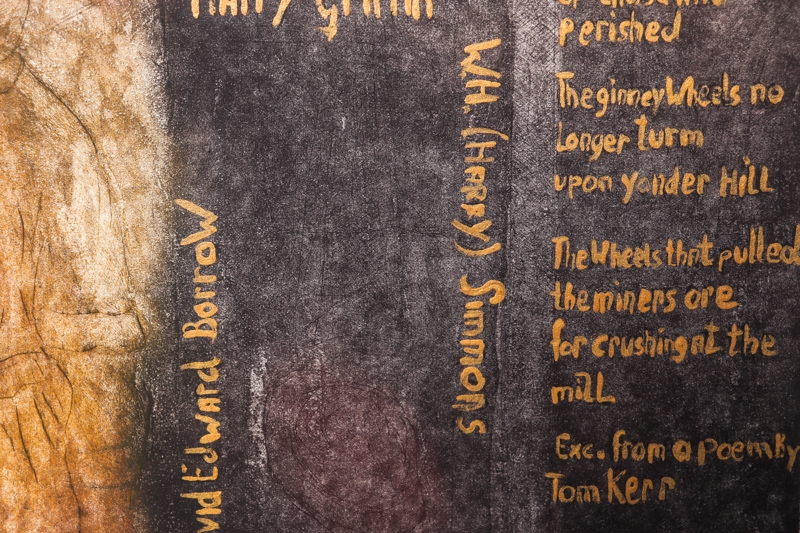 perished
The ginney Wheels no
Longer turm
upon yonder Hill
The Wheels that pulled
the miners are
for crushing at the
mill
Exc. from a poem By
Tom Kerr
W.H. (Harry) Simmons
Edward Borrow